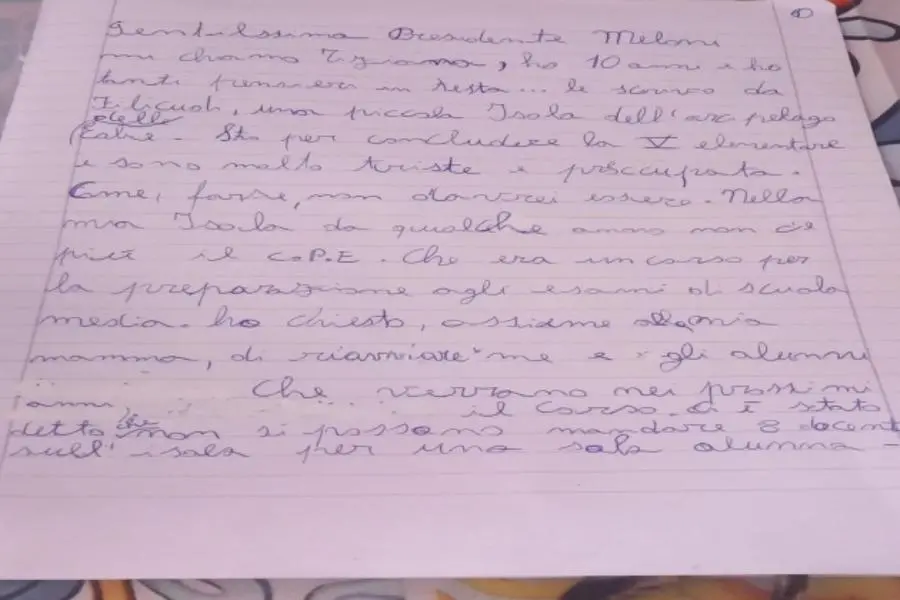 ①
Gentilissima Presidente Meloni
mi chiamo Tiziana, ho 10 anni e ho
tanti pensieri in testa... le scrivo da
Filicudi, una piccola Isola dell'arcipelago
delle
Eolie. Sto per concludere la V elementare
e sono molto triste e preoccupata.
Come, forse, non dovrei essere. Nella
mia Isola da qualche anno non c'è
più il C.P.E. Che era un corso per
la preparazione agli esami di scuola
media. ho chiesto, assieme alla mia
mamma, di riavviare me e gli alunni
Che verrano nei prossimi
anni il corso. Ci è stato
detto che non si possono mandare 8 docenti
sull'isola per una sola alunna -